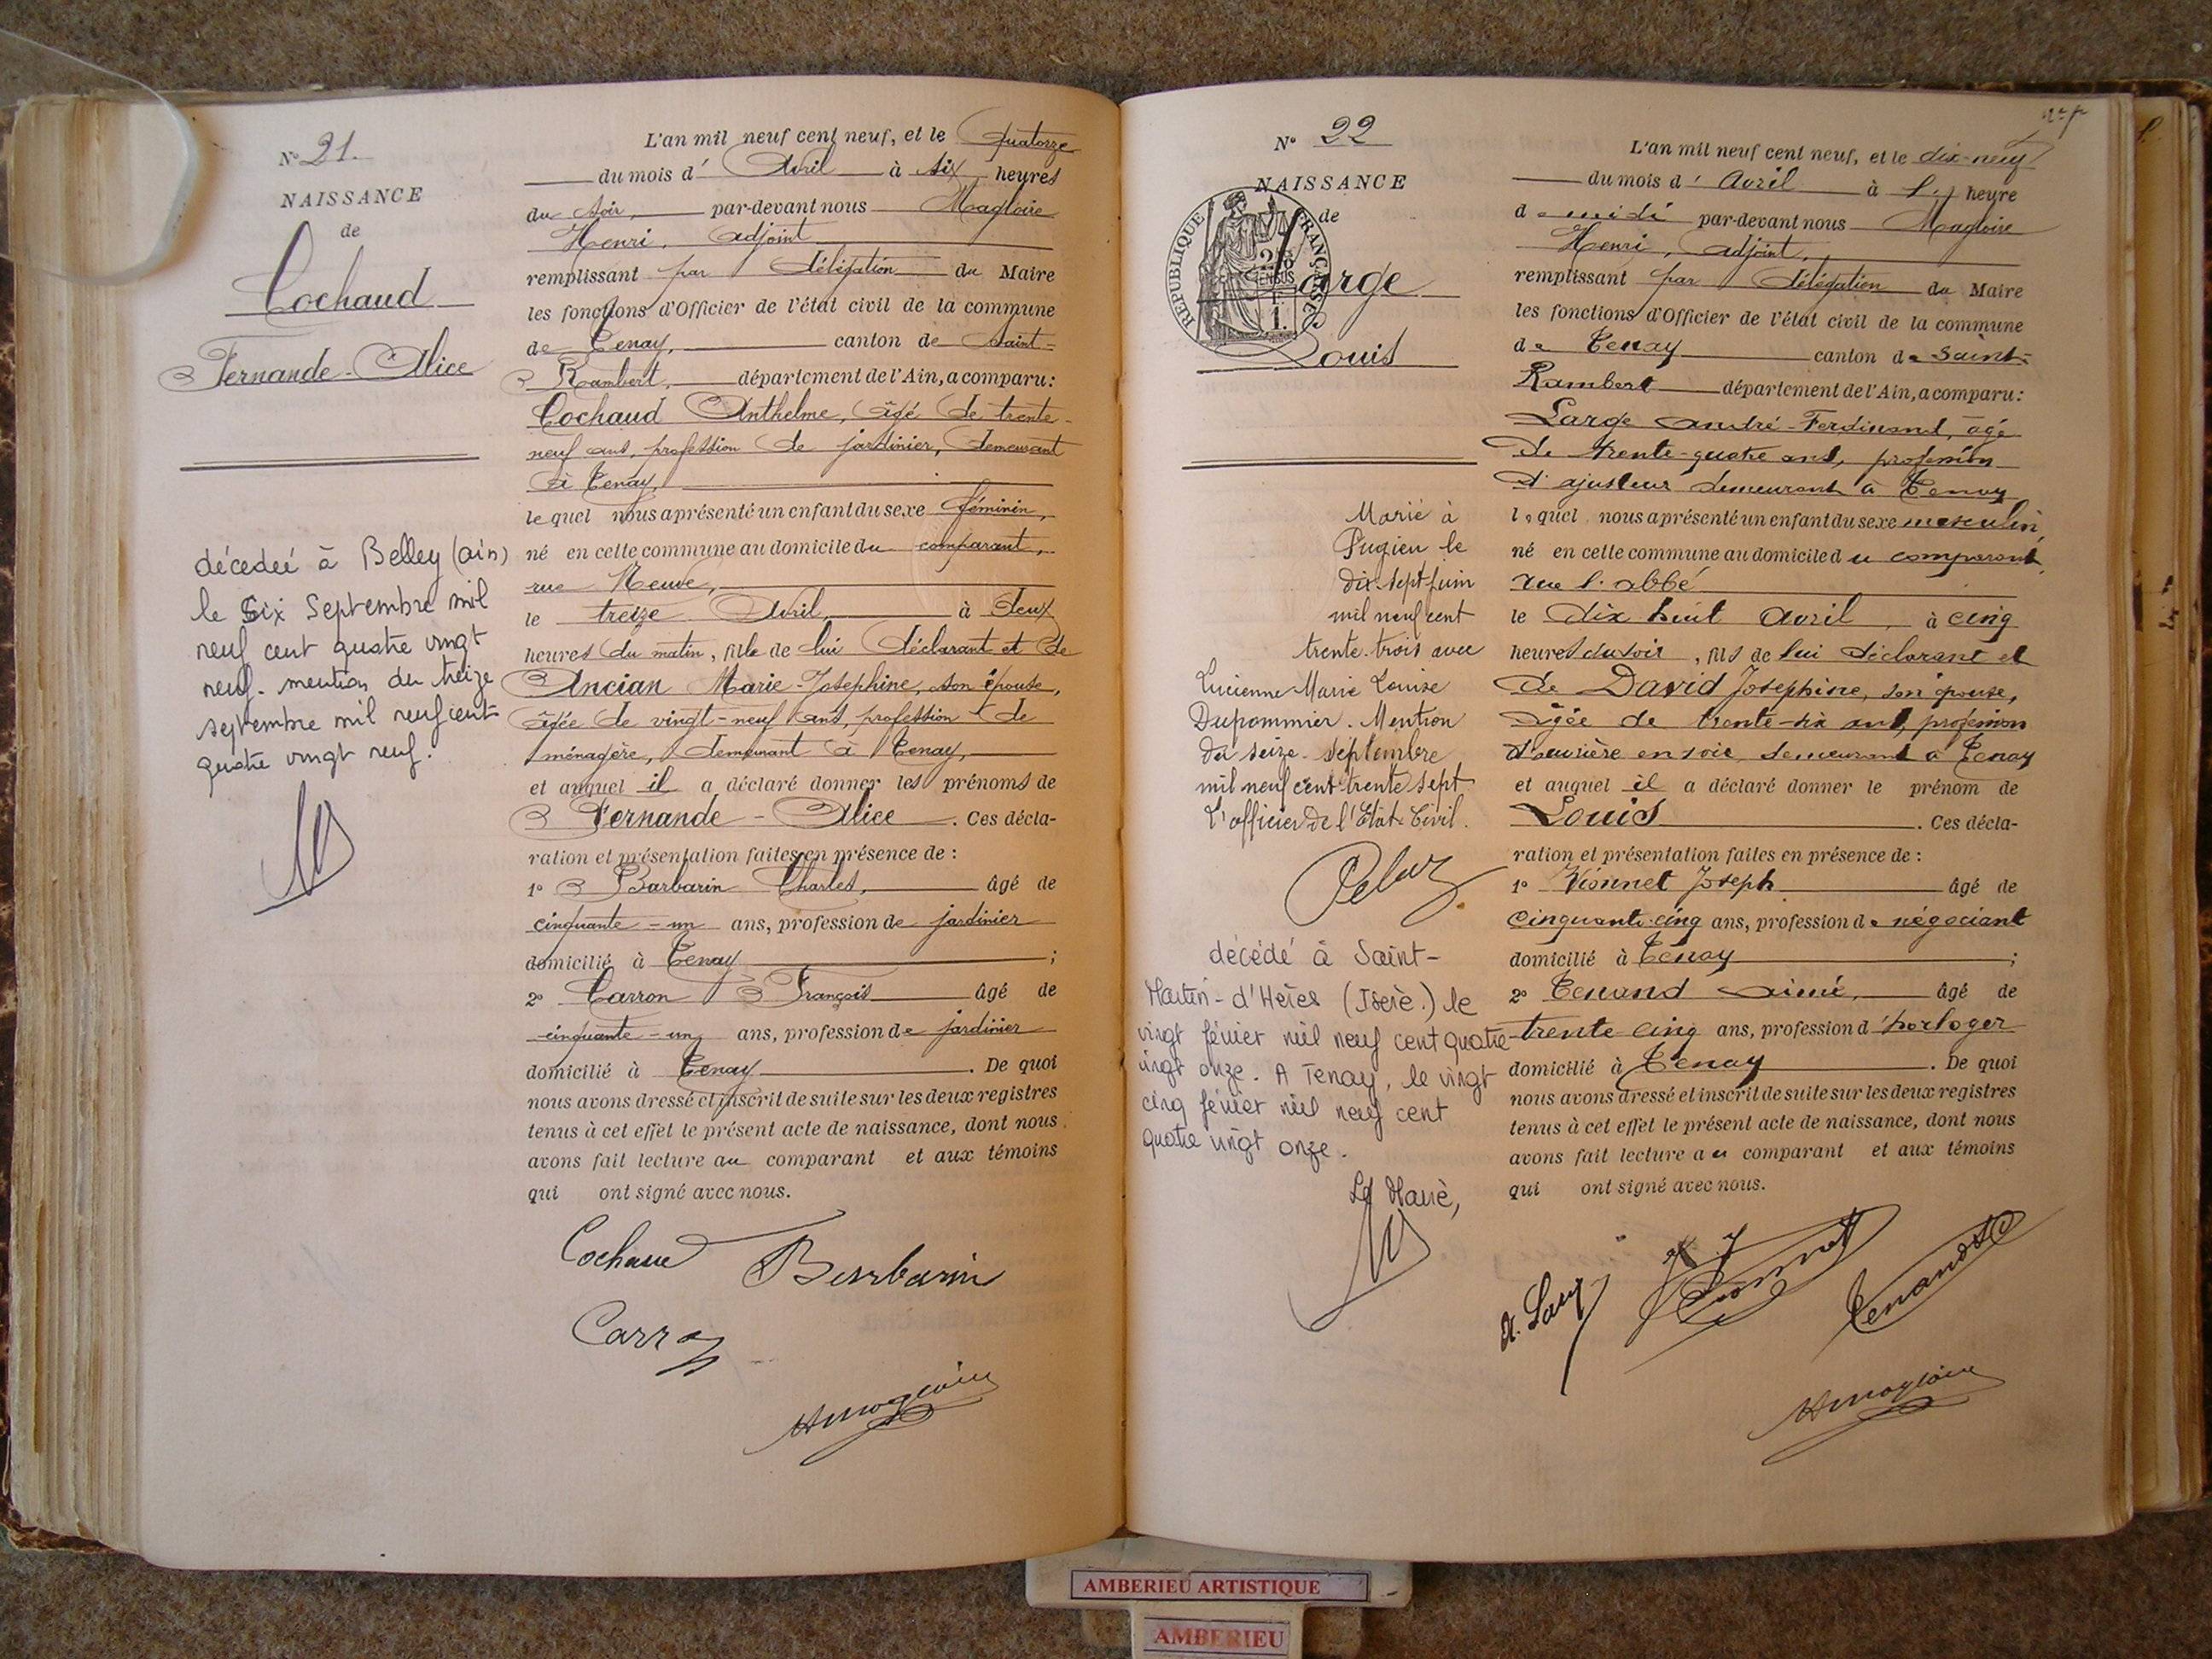 N° 21.
NAISSANCE
de
Cochaud
Fernande-Alice
décédeé à Belley (ain)
le Six Septembre mil
neuf cent quatre vingt
neuf. mention du treize
septembre mil neuf cent
quatre vingt neuf.
L'an mil neuf cent neuf, et le Quatorze
du mois d' Avril à six heures
du soir, par-devant nous Magloire
Henri, adjoint
remplissant par délégation du Maire
les fonctions d'Officier de l'état civil de la commune
de Tenay, canton de Saint-
Rambert, département de l'Ain, a comparu:
Cochaud Anthelme, âgé de trente-
neuf ans, profession de jardinier, demeurant
à Tenay,
lequel nous a présenté un enfant du sexe féminin,
né en cette commune au domicile du comparant,
rue Neuve,
le treize Avril, à deux
heures du matin, fille de lui déclarant et de
Ancian Marie-Josephine, son épouse,
âgée de vingt-neuf ans, profession de
ménagère, demeurant à Tenay,
et auquel il a déclaré donner les prénoms de
Fernande - Alice. Ces décla-
ration et présentation faites en présence de :
1° Barbarin Charles, âgé de
cinquante-un ans, profession de jardinier
domicilié à Tenay ;
2° Carron François âgé de
cinquante-un ans, profession de jardinier
domicilié à Tenay. De quoi
nous avons dressé et inscrit de suite sur les deux registres
tenus à cet effet le présent acte de naissance, dont nous
avons fait lecture au comparant et aux témoins
qui ont signé avec nous.
Cochaud Barbarin
Carron
Hmagloire
N° 22
NAISSANCE
de
REPUBLIQUE FRANÇAISE
Large
Louis
Marié à
Pugieu le
dix sept juin
mil neuf cent
trente trois avec
Lucienne Marie Louise
Dupommier. Mention
du seize septembre
mil neuf cent trente sept
L'officier de l'Etat Civil.
décédé à Saint-
Martin-d'Hères (Isère.) le
vingt février mil neuf cent quatre
vingt onze. A Tenay, le vingt
cinq février mil neuf cent
quatre vingt onze.
Le Maire,
L'an mil neuf cent neuf, et le dix-neuf
du mois d' Avril à heure
de midi par-devant nous Magloire
Henri, adjoint,
remplissant par délégation du Maire
les fonctions d'Officier de l'état civil de la commune
de Tenay canton de Saint-
Rambert département de l'Ain, a comparu:
Large André-Ferdinand, âgé
de trente-quatre ans, profession
d'ajusteur demeurant à Tenay
lequel nous a présenté un enfant du sexe masculin,
né en cette commune au domicile du comparant,
rue l'abbé
le dix huit Avril, à cinq
heures du soir, fils de lui déclarant et
de David Josephine, son épouse,
âgée de trente-six ans, profession
d'ouvrière en soie, demeurant à Tenay
et auquel il a déclaré donner le prénom de
Louis. Ces décla-
ration et présentation faites en présence de :
1° Vionnet Joseph âgé de
cinquante-cinq ans, profession de négociant
domicilié à Tenay ;
2° Tenand aimé, âgé de
trente cinq ans, profession d'horloger
domicilié à Tenay. De quoi
nous avons dressé et inscrit de suite sur les deux registres
tenus à cet effet le présent acte de naissance, dont nous
avons fait lecture au comparant et aux témoins
qui ont signé avec nous.
Hmagloire
AMBERIEU ARTISTIQUE
AMBERIEU